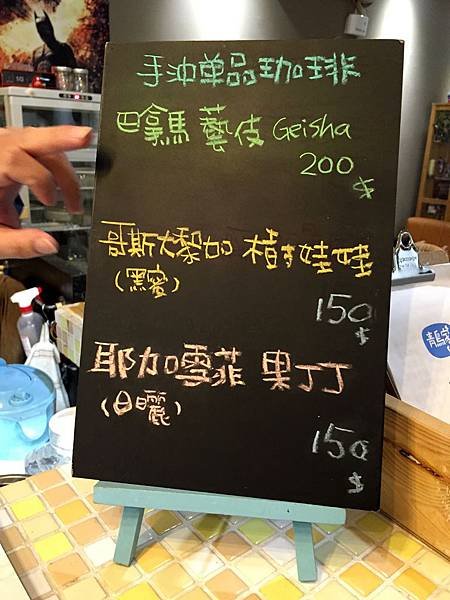 手沖单品珈琲
巴拿馬 藝伎 Geisha
200
$
哥斯大黎加 樹娃娃
(黑蜜)
150
$
耶加雪菲 果丁丁
(日曬)
150
$